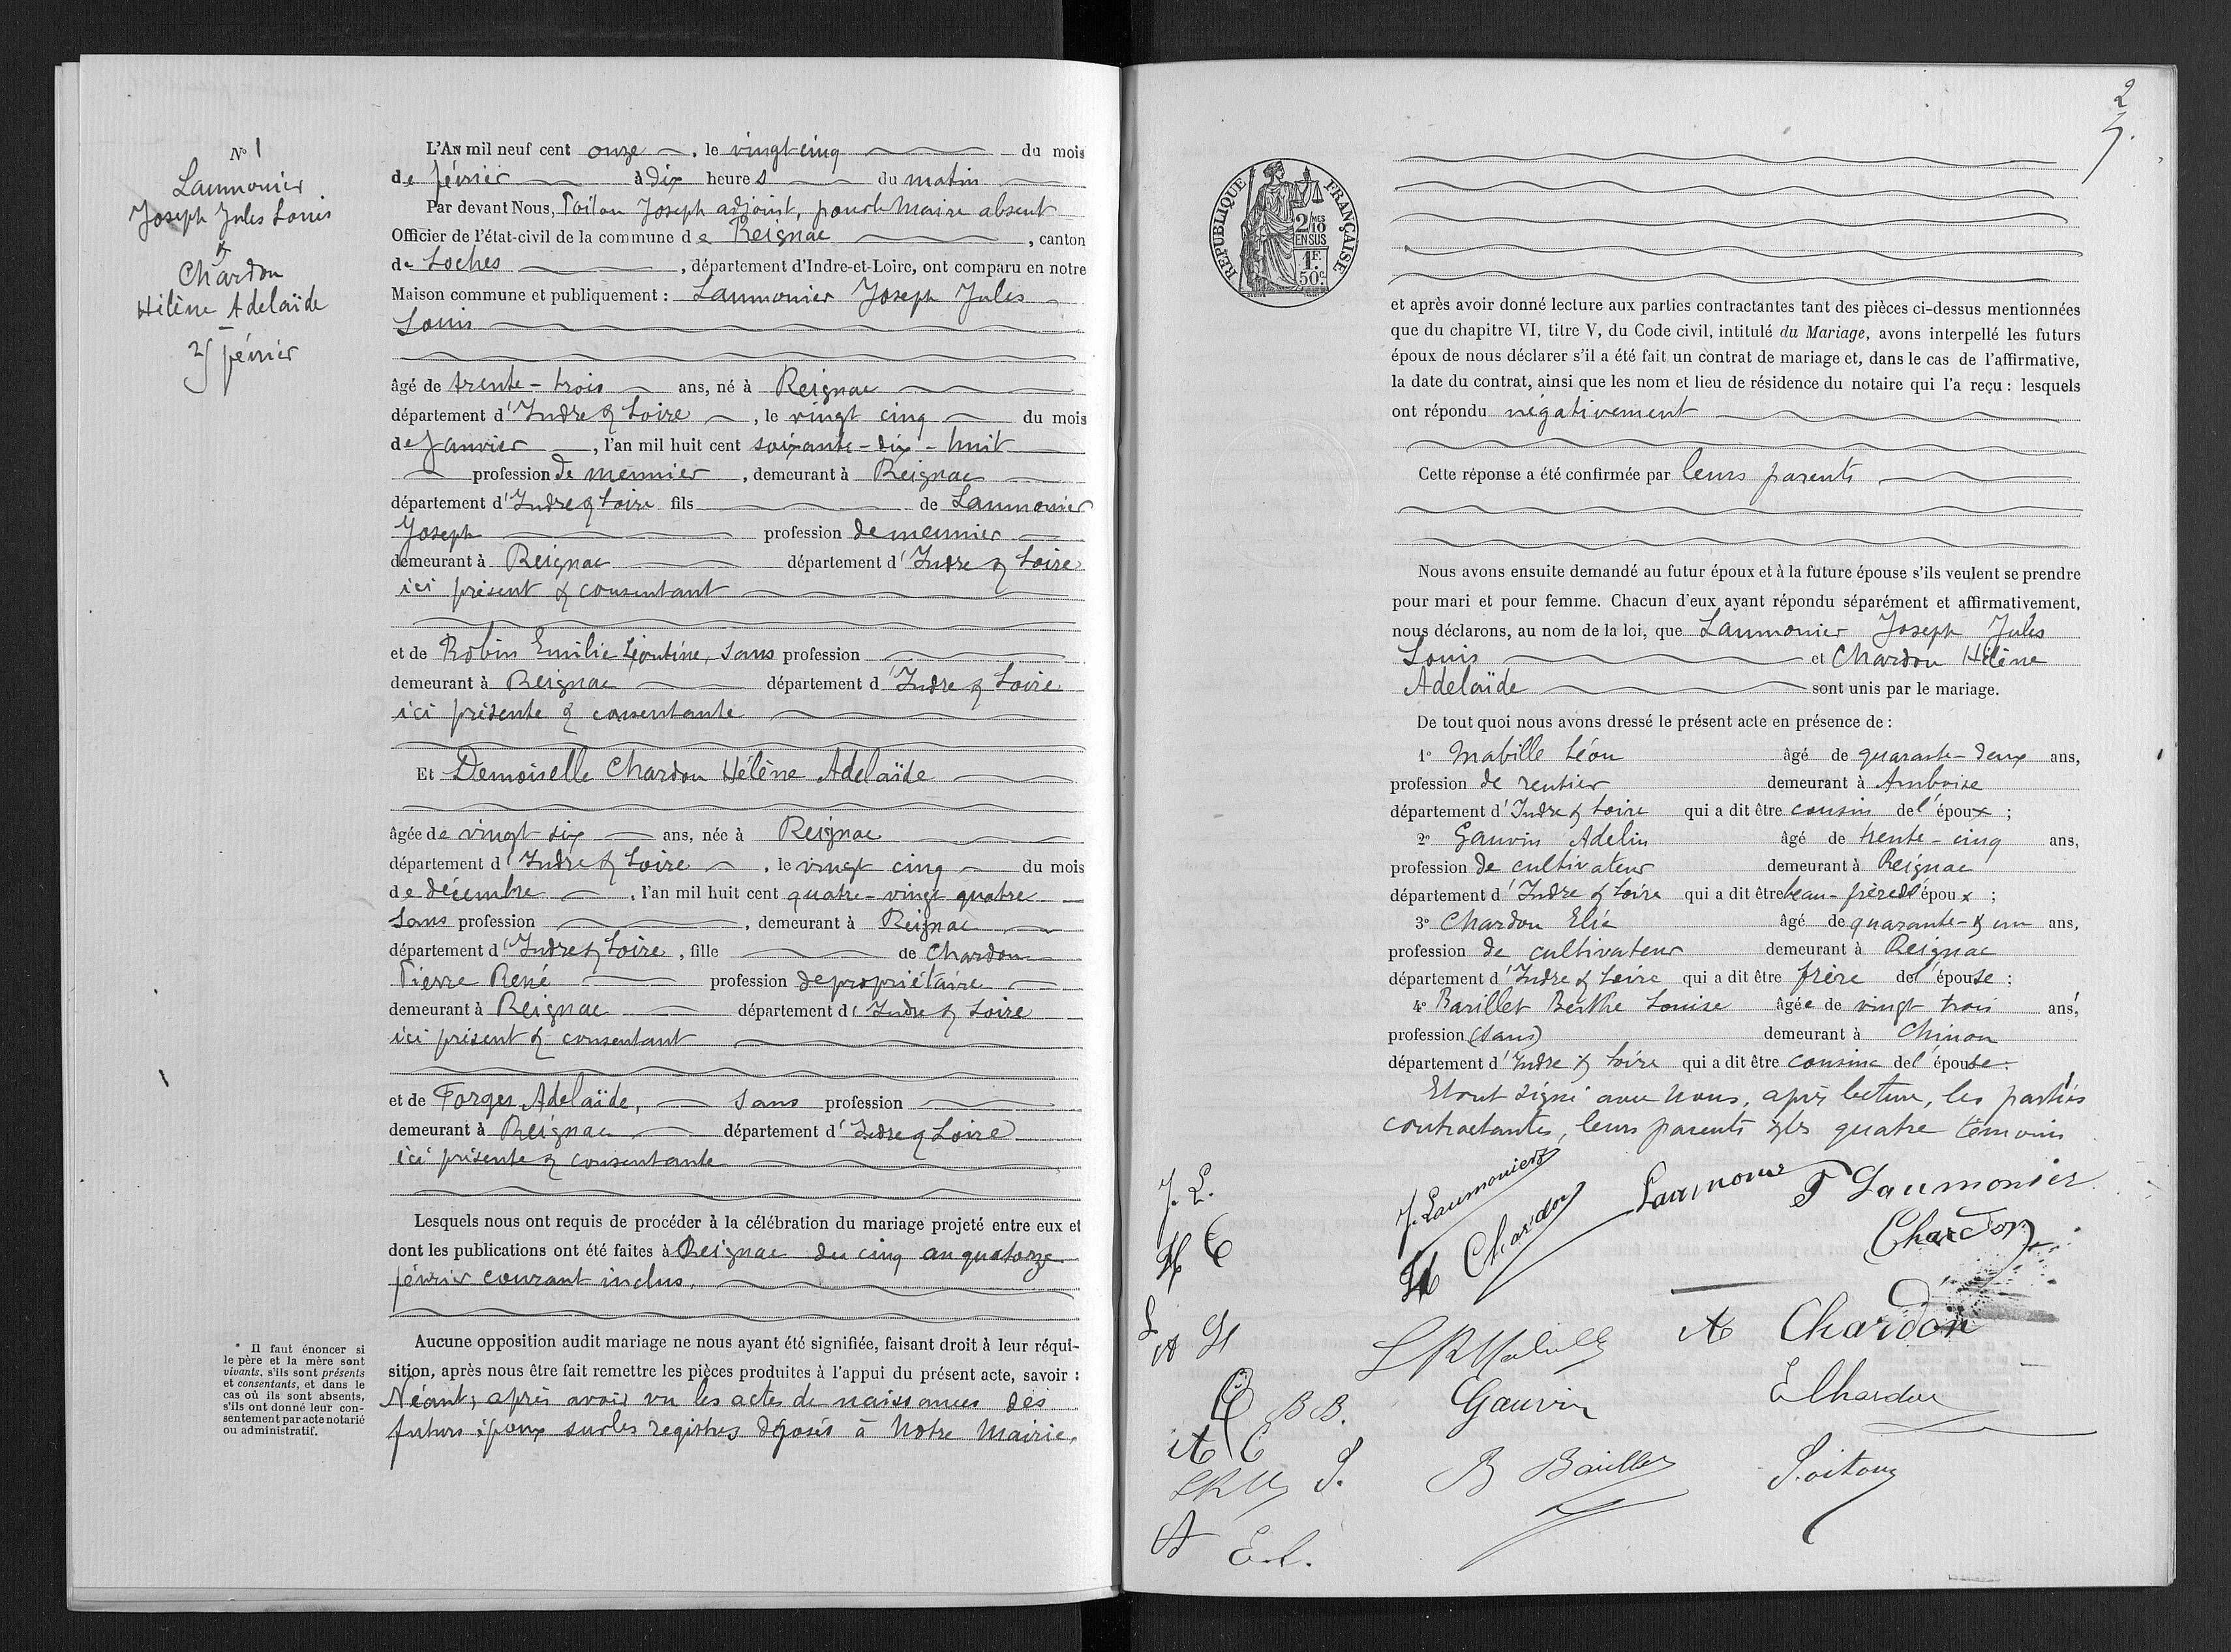 N° 1
Laumonier
Joseph Jules Louis
&
Chardon
Hélène Adelaïde
25 février
L'An mil neuf cent onze, le vingt-cinq du mois
de février à dix heures du matin
Par devant Nous, Poitou Joseph adjoint, pour le Maire absent
Officier de l'état-civil de la commune de Reignac, canton
de Loches, département d'Indre-et-Loire, ont comparu en notre
Maison commune et publiquement : Laumonier Joseph Jules
Louis
âgé de trente-trois ans, né à Reignac
département d'Indre & Loire, le vingt cinq du mois
de Janvier, l'an mil huit cent soixante-dix-huit
profession de meunier, demeurant à Reignac
département d'Indre & Loire fils de Laumonier
Joseph profession de meunier
demeurant à Reignac département d'Indre & Loire
ici présent & consentant
et de Robin Emilie Léontine, sans profession
demeurant à Reignac département d'Indre & Loire
ici présente & consentante
Et Demoiselle Chardon Hélène Adelaïde
âgée de vingt six ans, née à Reignac
département d'Indre & Loire, le vingt cinq du mois
de décembre, l'an mil huit cent quatre-vingt quatre
sans profession, demeurant à Reignac
département d'Indre & Loire, fille de Chardon
Pierre René profession de propriétaire
demeurant à Reignac département d'Indre & Loire
ici présent & consentant
et de Forges Adelaïde, sans profession
demeurant à Reignac département d'Indre & Loire
ici présente & consentante
Lesquels nous ont requis de procéder à la célébration du mariage projeté entre eux et
dont les publications ont été faites à Reignac du cinq au quatorze
février courant inclus.
Aucune opposition audit mariage ne nous ayant été signifiée, faisant droit à leur réqui-
sition, après nous être fait remettre les pièces produites à l'appui du présent acte, savoir :
Néant, après avoir vu les actes de naissances des
futurs époux sur les registres déposés à notre Mairie,
* Il faut énoncer si
le père et la mère sont
vivants, s'ils sont présents
et consentants, et dans le
cas où ils sont absents,
s'ils ont donné leur con-
sentement par acte notarié
ou administratif.
2
RÉPUBLIQUE FRANÇAISE
2/10
MES
EN SUS
1F.
50c.
et après avoir donné lecture aux parties contractantes tant des pièces ci-dessus mentionnées
que du chapitre VI, titre V, du Code civil, intitulé du Mariage, avons interpellé les futurs
époux de nous déclarer s'il a été fait un contrat de mariage et, dans le cas de l'affirmative,
la date du contrat, ainsi que les nom et lieu de résidence du notaire qui l'a reçu : lesquels
ont répondu négativement
Cette réponse a été confirmée par leurs parents
Nous avons ensuite demandé au futur époux et à la future épouse s'ils veulent se prendre
pour mari et pour femme. Chacun d'eux ayant répondu séparément et affirmativement,
nous déclarons, au nom de la loi, que Laumonier Joseph Jules
Louis et Chardon Hélène
Adelaïde sont unis par le mariage.
De tout quoi nous avons dressé le présent acte en présence de :
1° Mabille Léon âgé de quarante-deux ans,
profession de rentier demeurant à Amboise
département d'Indre & Loire qui a dit être cousin de l'époux ;
2° Gauvin Adelin âgé de trente-cinq ans,
profession de cultivateur demeurant à Reignac
département d'Indre & Loire qui a dit être beau-frère de l'époux ;
3° Chardon Elie âgé de quarante-&un ans,
profession de cultivateur demeurant à Reignac
département d'Indre & Loire qui a dit être frère de l'épouse ;
4° Barillet Berthe Louise âgée de vingt trois ans,
profession (sans) demeurant à Chinon
département d'Indre & Loire qui a dit être cousine de l'épouse.
Et ont signé avec nous, après lecture, les parties
contractantes, leurs parents & les quatre témoins
J. L.
J. Laumonier
Laumonier
Laumonier
H C
H Chardon
Chardon
A Chardon
Gauvin
E Chardon
B B.
A C
B Barillet
Poitou